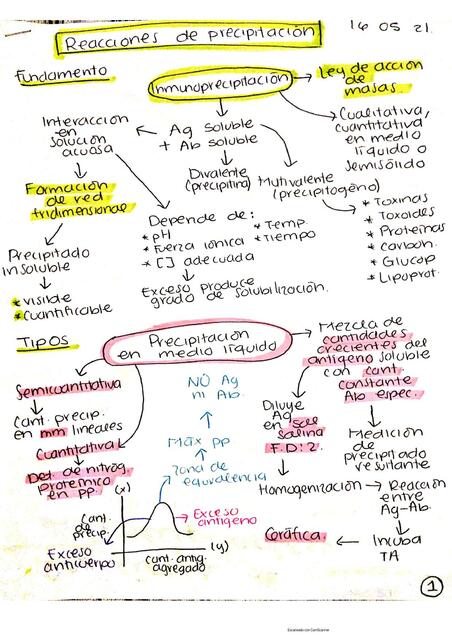 16 05 21.
Reacciones de precipitación
Fundamento
Inmunoprecipitación
Ley de acción
de
masas.
Interacción
en
solución
acuosa
Ag soluble
+ Ab soluble
Cualitativa,
cuantitativa
en medio
líquido o
semisólido
Divalente
(precipitina)
Mutivalente
(precipitogeno)
Formación
de red
tridimensional
* Toxinas
* Toxoides
* Proteinas
* Carbon.
* Glucop
* Lipoprot.
Depende de:
* pH
* Fuerza iónica
* [] adecuada
* Temp.
* Tiempo
Precipitado
insoluble
* visible
* Cuantificable
Exceso produce
grado de solubilización.
Tipos
Precipitación
en medio líquido
Mezcla de
cantidades
crecientes del
antígeno soluble
con cant.
constante
Ab espec.
Semicuantitativa
Cant. precip.
en mm lineales
Cuantitativa
Det. de nitrog.
proteínico
en PP.
NO Ag
ni Ab.
Máx PP
Zona de
equivalencia
Diluye
Ag
en sol
salina
F.D: 2.
Medición
de
precipitado
resultante
Homogenización
Reacción
entre
Ag-Ab.
Incuba
TA
Gráfica.
(x)
Cant.
de
precip.
Exceso
antígeno
Exceso
anticuerpo
(y)
cant. antig.
agregado
1
Escaneado con CamScanner